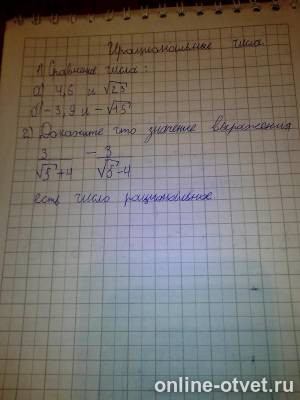 Ирациональные числа
1) Сравните числа:
а) 4,6 и √23
б) -3,9 и -√15
2) Докажите что значение выражения
3/(√5+4) - 3/(√5-4)
есть число рациональное
online-otvet.ru